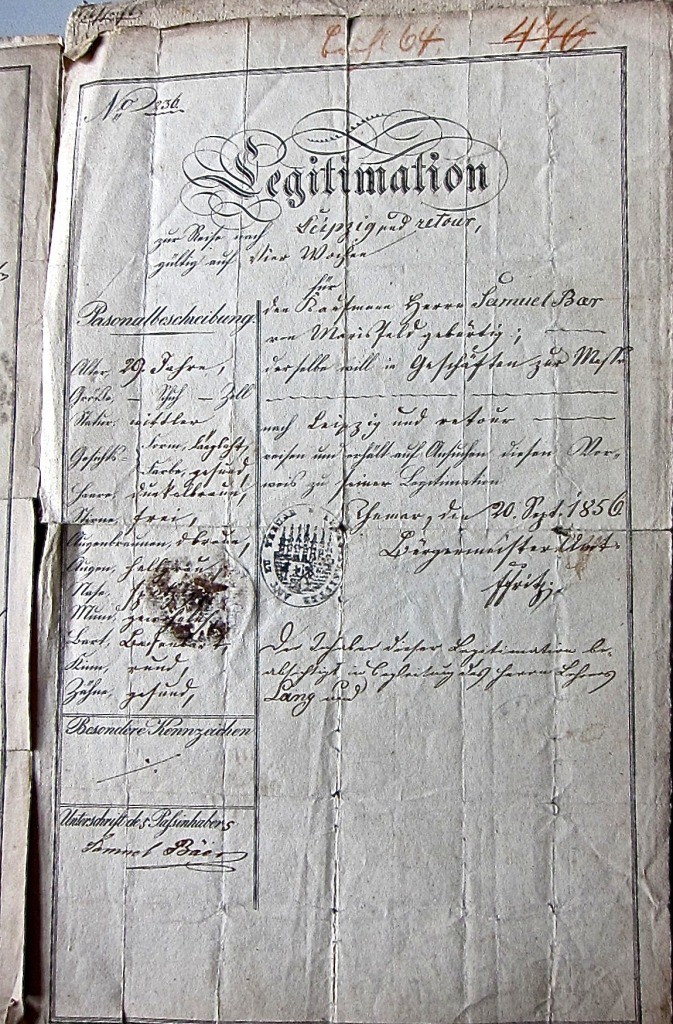 446
No 236.
Legitimation
zur Reise nach Leipzig und retour,
gültig auf Vier Wochen
für
den Kaufmann Herrn Samuel Bär
von Marisfeld gebürtig;
derselbe will in Geschäften zur Messe
nach Leipzig und retour
reisen und erhält auf Ansuchen diesen Vor-
weis zu seiner Legitimation
Themar, den 20. Sept. 1856
Bürgermeister Amt
Der Inhaber dieser Legitimation be-
absichtigt in Begleitung des Herrn Lehrers
Lang und
Pasonalbeschreibung.
Alter, 29 Jahre,
Größe, – Schuh – Zoll
Statur, mittler
Gesichts- Form, länglicht,
Farbe, gesund,
Haare, dunkelbraun,
Stirne, frei,
Augenbraunen, dbraun,
Augen, hellbraun
Nase,
Mund, gewöhnlich
Bart, Backenbart,
Kinn, rund
Zähne, gesund,
Besondere Kennzeichen
Unterschrift des Paßinhabers
Samuel Bäer